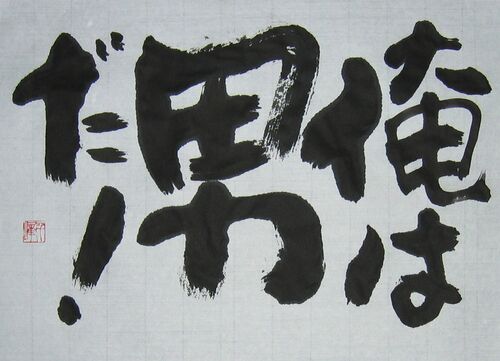 俺は
男
だ!